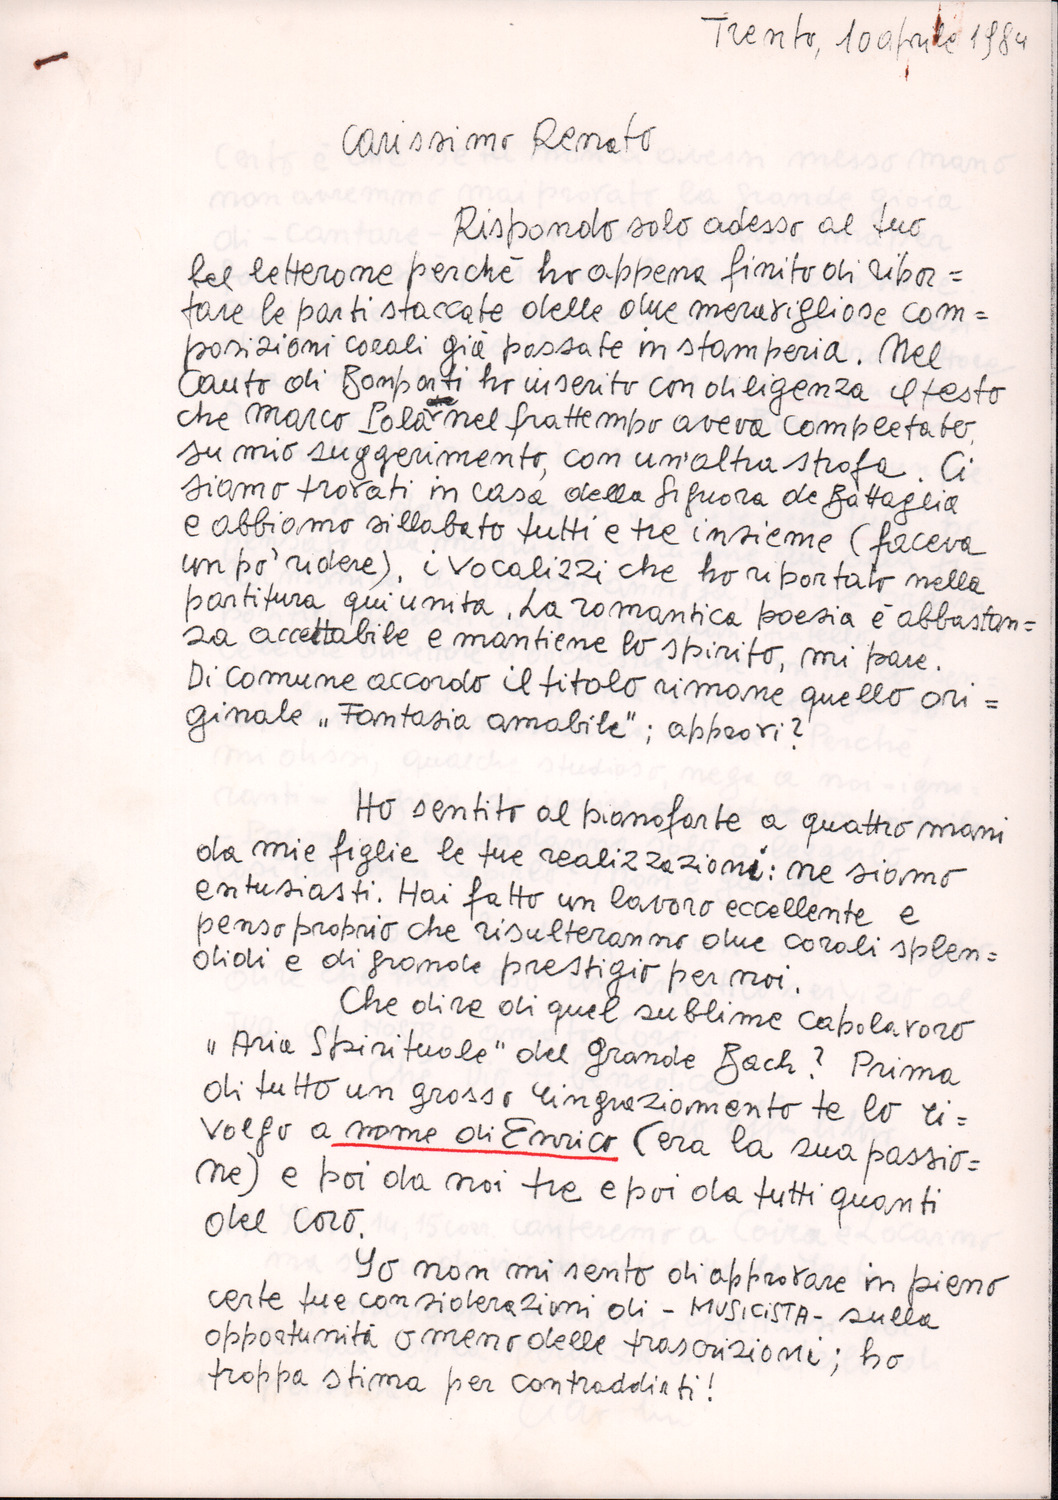 Trento, 10 aprile 1984
Carissimo Renato
Rispondo solo adesso al tuo
bel letterone perchè ho appena finito di ripor=
tare le parti staccate delle due meravigliose com=
posizioni corali già passate in stamperia. Nel
Canto di Bonporti ho inserito con diligenza il testo
che Marco Pola nel frattempo aveva completato,
su mio suggerimento, con un'altra strofa. Ci
siamo trovati in casa della Signora de Battaglia
e abbiamo sillabato tutti e tre insieme (faceva
un po' ridere), i vocalizzi che ho riportato nella
partitura qui unita. La romantica poesia è abbastan=
za accettabile e mantiene lo spirito, mi pare.
Di comune accordo il titolo rimane quello ori=
ginale „Fantasia amabile"; approvi?
Ho sentito al pianoforte a quattro mani
da mie figlie le tue realizzazioni: ne siamo
entusiasti. Hai fatto un lavoro eccellente e
penso proprio che risulteranno due corali splen=
didi e di grande prestigio per noi.
Che dire di quel sublime capolavoro
„Aria Spirituale" del grande Bach? Prima
di tutto un grosso ringraziamento te lo ri=
volgo a nome di Enrico (era la sua passio=
ne) e poi da noi tre e poi da tutti quanti
del Coro.
Yo non mi sento di approvare in pieno
certe tue considerazioni di - MUSICISTA - sulla
opportunità o meno delle trascrizioni; ho
troppa stima per contraddirti!